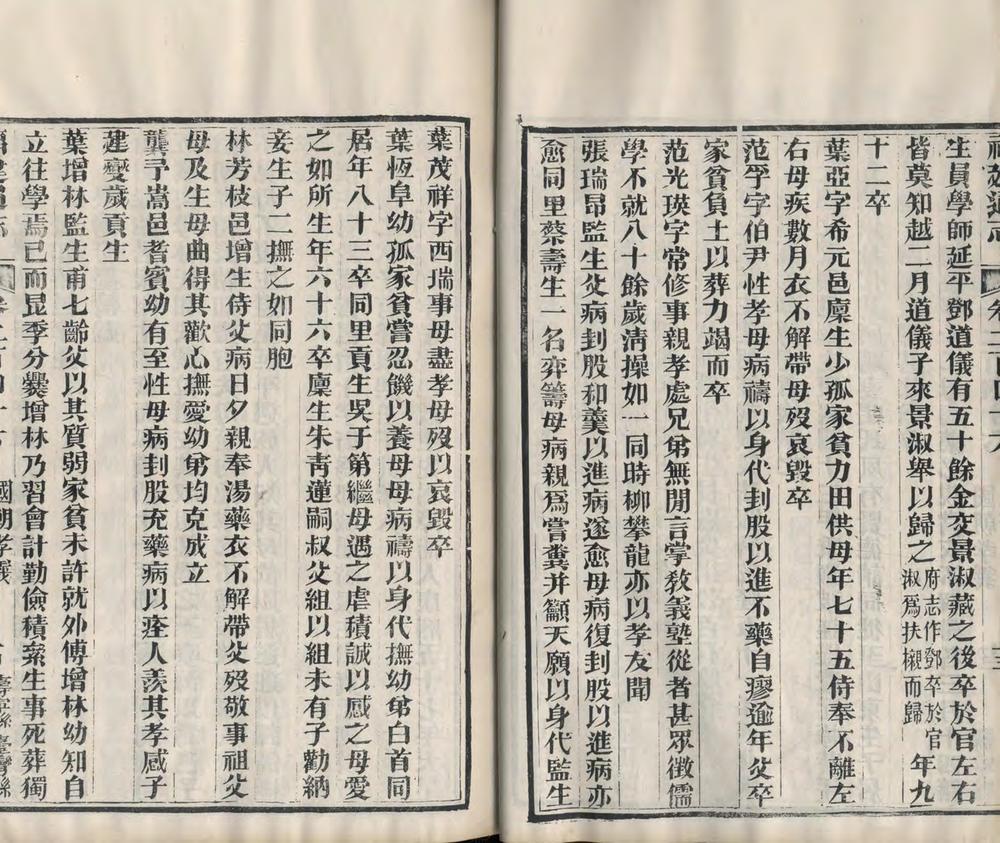 生員學師延平鄧道儀有五十餘金交景淑藏之後卒於官左右
皆莫知越二月道儀子來景淑舉以歸之府志作鄧卒於官淑爲扶櫬而歸年九
十二卒
葉亞字希元邑廩生少孤家貧力田供母年七十五侍奉不離左
右母疾數月衣不解帶母歿哀毀卒
范孚字伯尹性孝母病禱以身代刲股以進不藥自瘳逾年父卒
家貧負土以葬力竭而卒
范光瑛字常修事親孝處兄弟無閒言掌敎義塾從者甚眾徵儒
學不就八十餘歲淸操如一同時柳攀龍亦以孝友聞
張瑞昂監生父病刲股和羹以進病遂愈母病復刲股以進病亦
愈同里蔡壽生一名弈籌母病親爲嘗糞并籲天願以身代監生
葉茂祥字西瑞事母盡孝母歿以哀毀卒
葉恆阜幼孤家貧嘗忍饑以養母母病禱以身代撫幼弟白首同
居年八十三卒同里貢生吳于第繼母遇之虐積誠以感之母愛
之如所生年六十六卒廩生朱靑蓮嗣叔父組以組未有子勸納
妾生子二撫之如同胞
林芳枝邑增生侍父病日夕親奉湯藥衣不解帶父歿敬事祖父
母及生母曲得其歡心撫愛幼弟均克成立
龔予嵩邑耆賓幼有至性母病刲股充藥病以痊人羨其孝感子
建夔歲貢生
葉增林監生甫七齡父以其質弱家貧未許就外傅增林幼知自
立往學焉已而昆季分爨增林乃習會計勤儉積累生事死葬獨